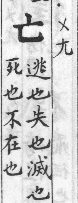 ·ㄨㄤ
亡
逃也失也滅也
死也不在也